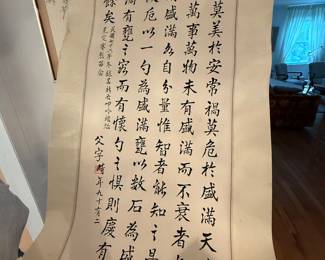 莫美於安常禍莫危於盛滿天
萬事萬物未有盛滿而不衰者
盛滿各自分量惟智者能知之是
卮以一勺為盛滿甕以數石為盛
有甕之容而有懷勺之懼則慶有
餘矣
父字時年九十有二